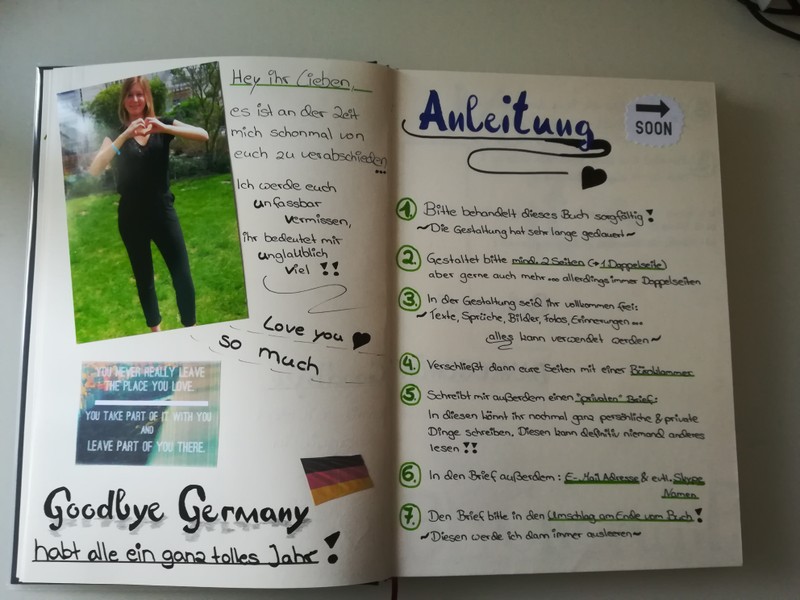 Hey ihr Lieben,
es ist an der Zeit
mich schonmal von
euch zu verabschieden
...
Ich werde euch
unfassbar
vermissen,
ihr bedeutet mir
unglaublich
viel !!
Love you
so much
YOU NEVER REALLY LEAVE
THE PLACE YOU LOVE.
YOU TAKE PART OF IT WITH YOU
AND
LEAVE PART OF YOU THERE.
Goodbye Germany
habt alle ein ganz tolles Jahr !
Anleitung
SOON
1. Bitte behandelt dieses Buch sorgfältig !
~Die Gestaltung hat sehr lange gedauert~
2. Gestaltet bitte mind. 2 Seiten (→1 Doppelseite)
aber gerne auch mehr... allerdings immer Doppelseiten
3. In der Gestaltung seid ihr vollkommen frei:
~Texte, Sprüche, Bilder, Fotos, Erinnerungen...
alles kann verwendet werden~
4. Verschließt dann eure Seiten mit einer Büroklammer
5. Schreibt mir außerdem einen "privaten" Brief:
In diesen könnt ihr nochmal ganz persönliche & private
Dinge schreiben. Diesen kann definitiv niemand anderes
lesen !!
6. In den Brief außerdem: E-Mail Adresse & evtl. Skype
Namen
7. Den Brief bitte in den Umschlag am Ende vom Buch !
~Diesen werde ich dann immer ausleeren~